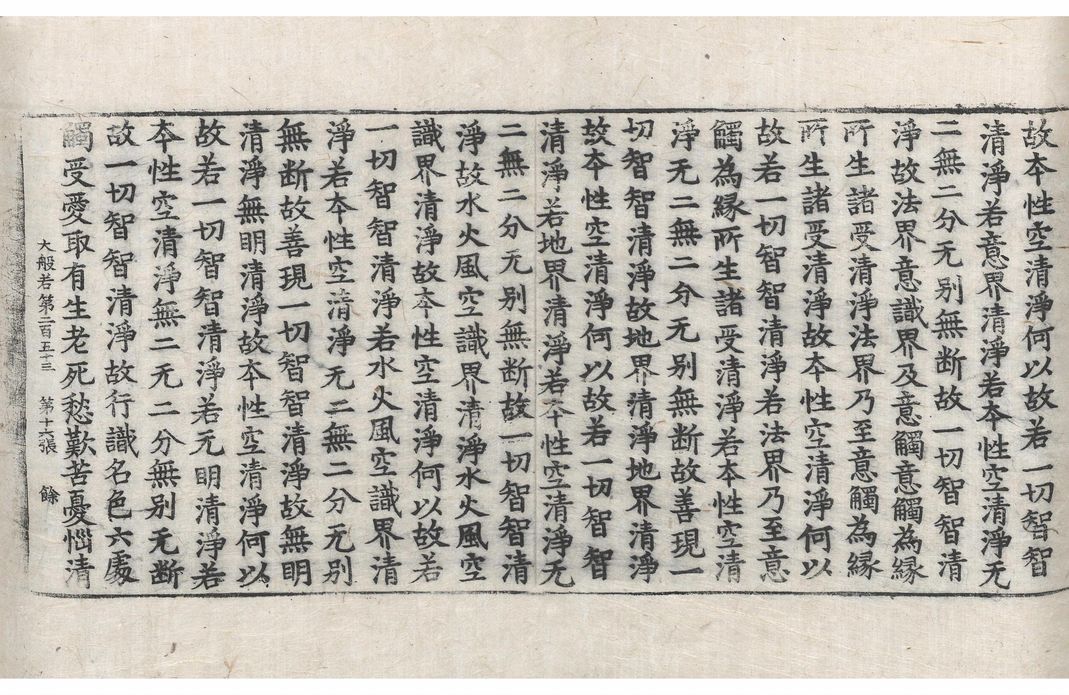 故夲性空清淨何以故若一切智智
清淨若意界清淨若夲性空清淨无
二無二分无别無断故一切智智清
淨故法界意識界及意觸意觸為縁
所生諸受清淨法界乃至意觸為縁
所生諸受清淨故夲性空清淨何以
故若一切智智清淨若法界乃至意
觸為縁所生諸受清淨若本性空清
淨无二無二分无别無断故善現一
切智智清淨故地界清淨地界清淨
故夲性空清淨何以故若一切智智
清淨若地界清淨若夲性空清淨无
二無二分无别無断故一切智智清
淨故水火風空識界清淨水火風空
識界清淨故夲性空清淨何以故若
一切智智清淨若水火風空識界清
淨若夲性空清淨无二無二分无别
無断故善現一切智智清淨故無明
清淨無明清淨故夲性空清淨何以
故若一切智智清淨若无明清淨若
夲性空清淨無二无二分無别无断
故一切智智清淨故行識名色六處
觸受愛取有生老死愁歎苦憂惱清
大般若第二百五十三 第十六張 餘